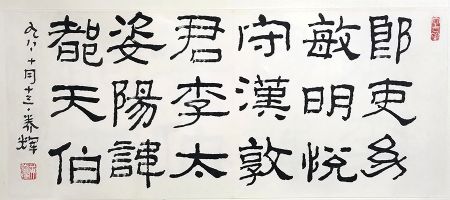 郎吏幼
敏明悦
守漢敦
君李太
姿陽諱
都天伯
九八 十月十三 輝